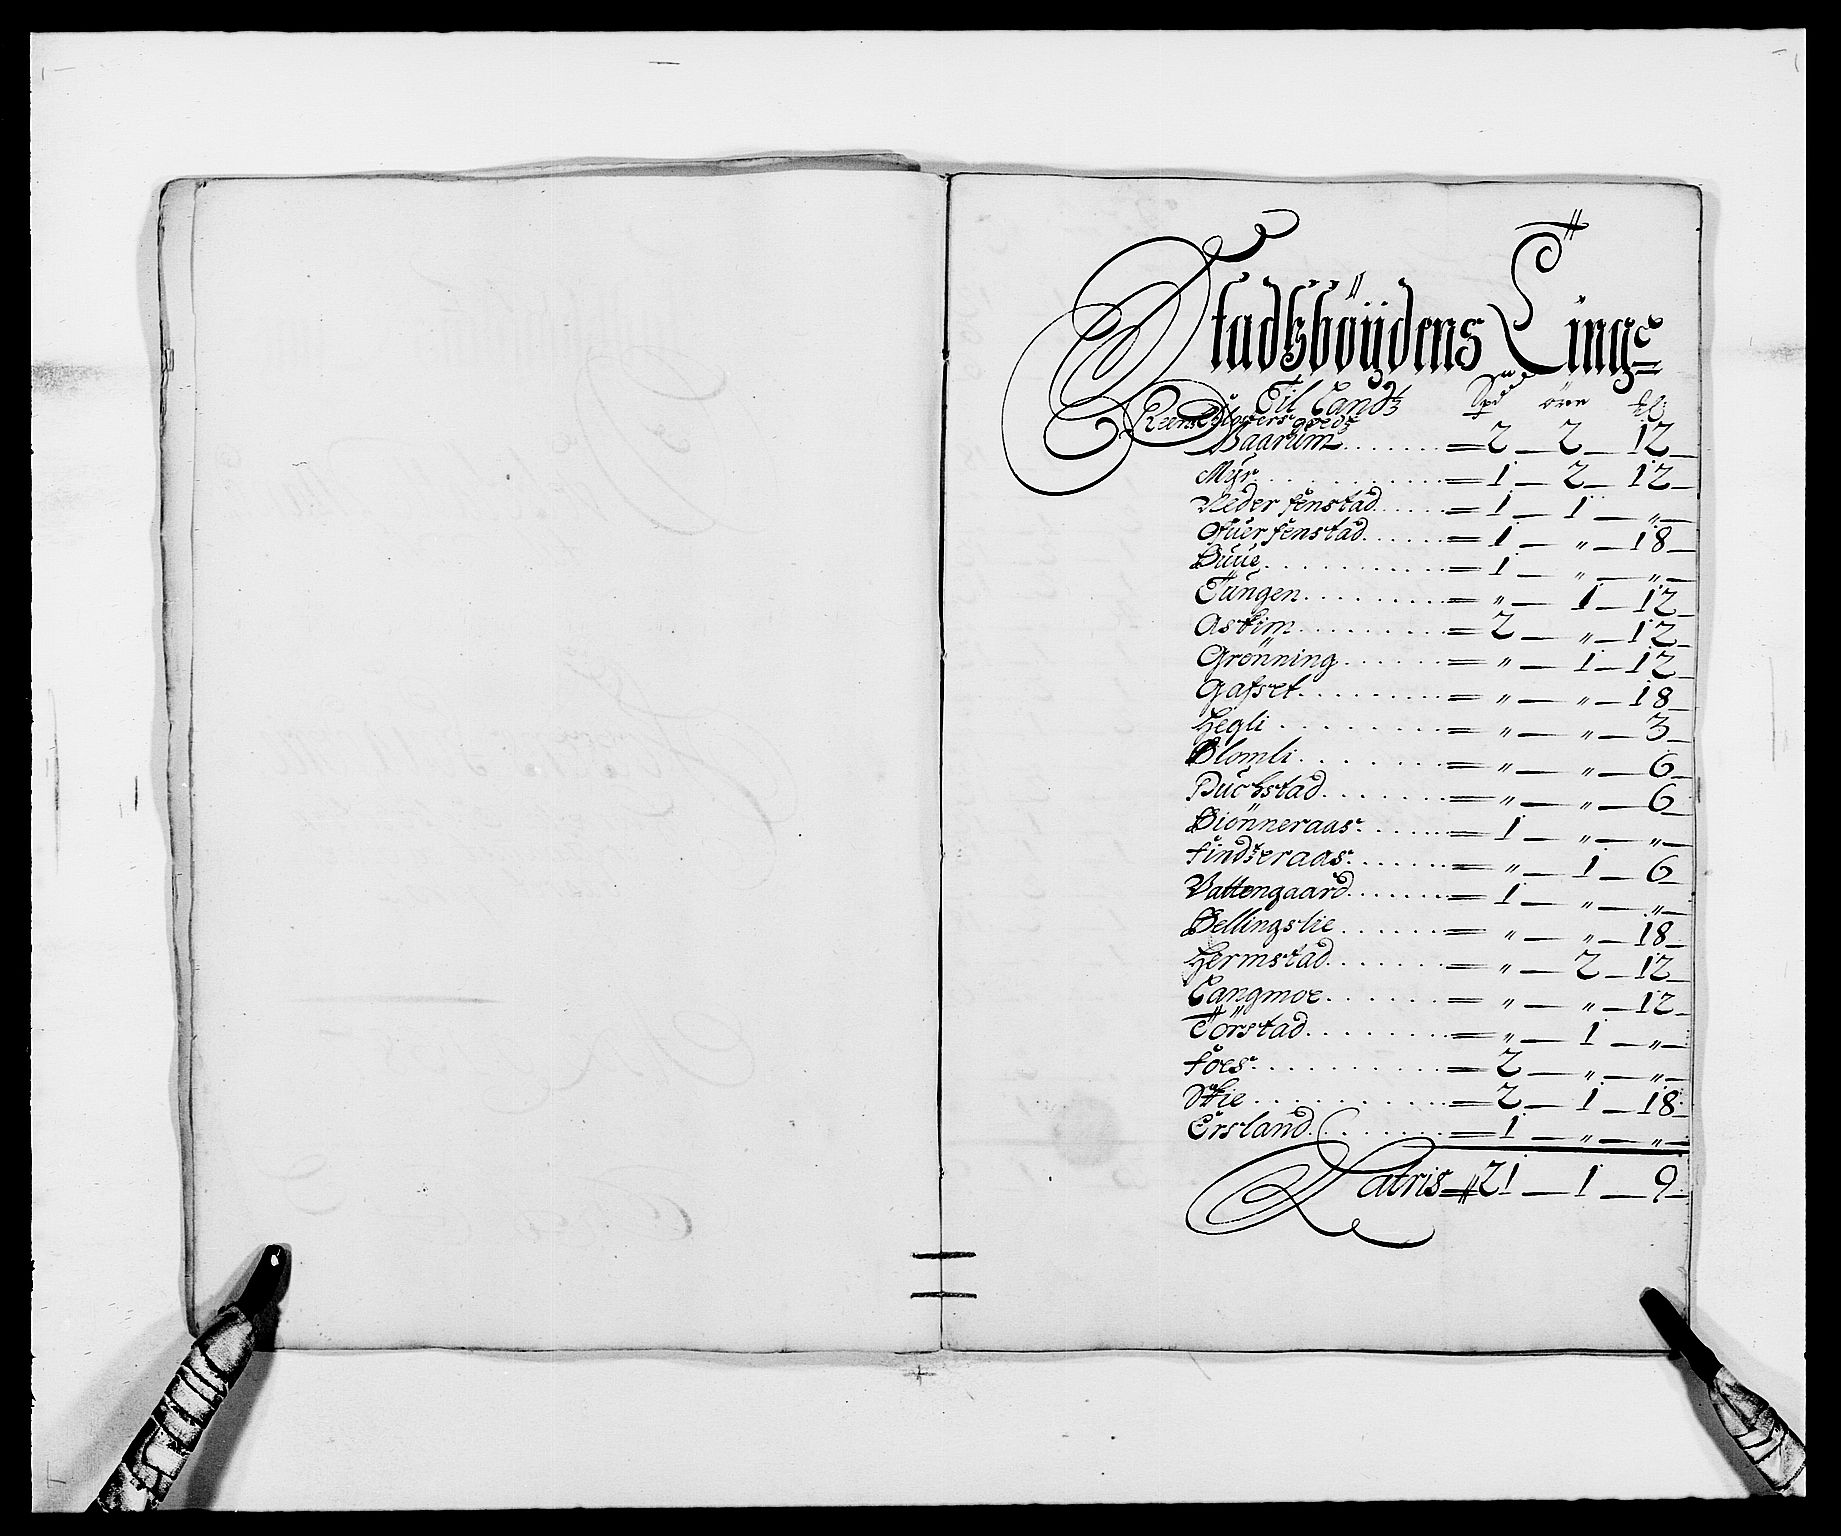 Stadsböydens Ting
Til Landz Spd öre [?]
Reens Closters goedz
Baarum = 2 — 2 — 12
Myr = 1 — 2 — 12
Neder fenstad = 1 — 1 — "
Ofuer fenstad = 1 — " — 18
Buue = 1 — " — "
Tungen = " — 1 — 12
Askim = 2 — " — 12
Grönning = " — 1 — 12
Gafset = " — " — 18
Hegli = " — " — 3
Blomli = " — " — 6
Buchstad = " — " — 6
Biönneraas = 1 — " — "
findzeraas = " — 1 — 6
Vattengaard = 1 — " — "
Bellingslie = " — " — 18
Hermstad = " — 2 — 12
Langmoe = " — " — 12
Törstad = " — 1 — "
foes = 2 — " — "
Skie = 2 — 1 — 18
Ersland = 1 — " — "
Latris 21 — 1 — 9